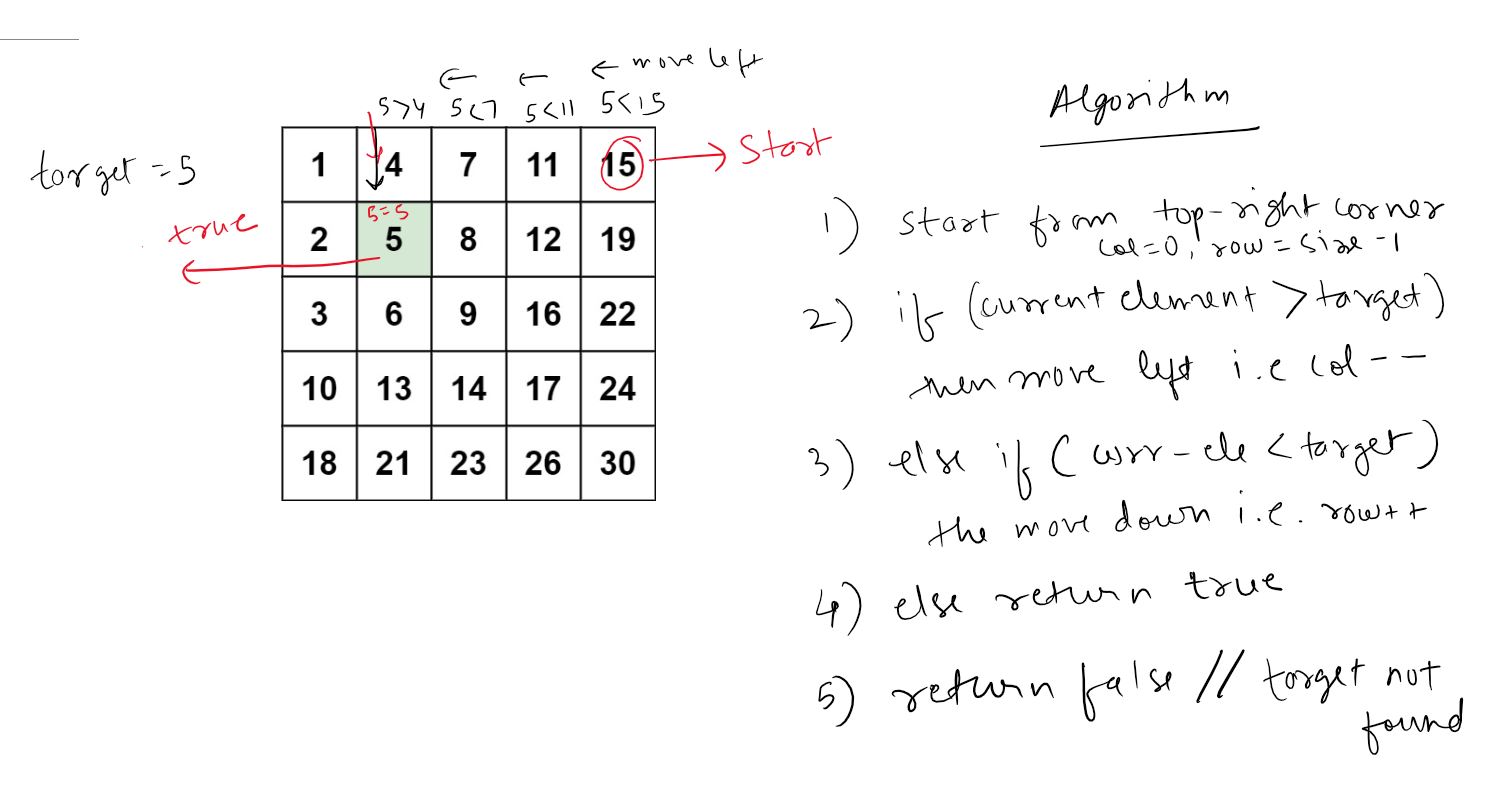 ← move left
← ←
5>4 5<7 5<11 5<15
target = 5
1 4 7 11 15 → Start
5=5
true
2 5 8 12 19
3 6 9 16 22
10 13 14 17 24
18 21 23 26 30
Algorithm
1) start from top-right corner
col=0, row = size -1
2) if (current element > target)
then move left i.e col --
3) else if (curr-ele < target)
the move down i.e. row++
4) else return true
5) return false // target not
found